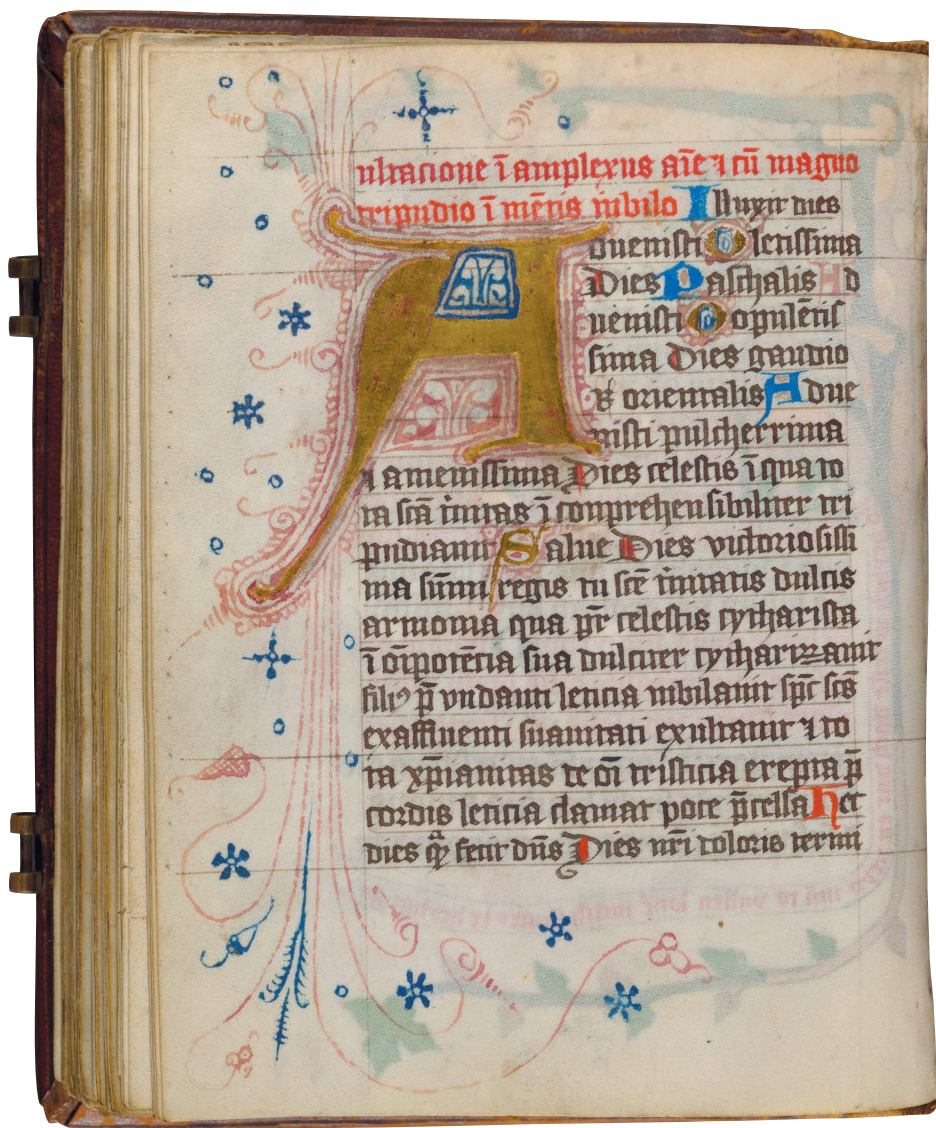 ultacione ī amplexus aīe ⁊ cū magno
tripudio ī mētis iubilo Illuxit dies
A duenisti O letissima
Dies Paschalis Ad
uenisti O opulētis
sima Dies gaudio
& orientalis Adue
nisti pulcherrima
⁊ amenissima Dies celestis ī qua to
ta scā t̓nitas ī conprehensibiliter tri
pudiauit Salue Dies victoriosissi
ma sūmi regis tu scē t̓nitatis dulcis
armonia qua pr̄ celestis cytharista
ī oīpotēcia sua dulciter cytharizauit
filiꝰ p̄ vndanti leticia iubilauit sp̄c sc̄s
exaffluenti suauitati exultauit ⁊ to
ta xp̄ianitas te oī tristicia erepta p̄
cordis leticia clamat pore p̄celsa Hec
dies qͣ fecit dn̄s Dies nr̄i doloris termi